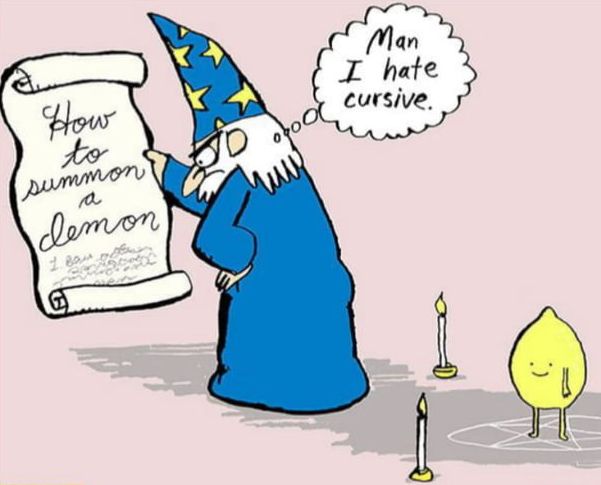 How
to
summon
a
demon
Man
I hate
cursive.